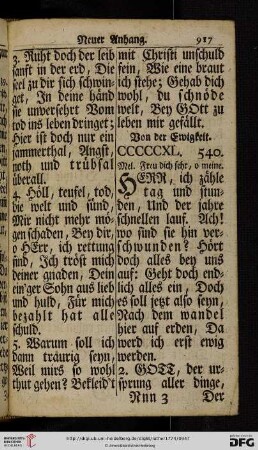 Neuer Anhang. 917
3. Ruht doch der leib
sanft in der erd, Die
seel zu dir sich schwin-
get, In deine händ
sie unversehrt Vom
tod ins leben dringet;
Hier ist doch nur ein
jammerthal, Angst,
noth und trübsal
überall.
4. Höll, teufel, tod,
die welt und sünd,
Mir nicht mehr mö-
gen schaden, Bey dir,
o HErr, ich rettung
find, Ich tröst mich
deiner gnaden, Dein
ein'ger Sohn aus lieb
und huld, Für mich
bezahlt hat alle
schuld.
5. Warum soll ich
dann traurig seyn,
Weil mirs so wohl
thut gehen? Bekleid't
mit Christi unschuld
fein, Wie eine braut
ich stehe; Gehab dich
wohl, du schnöde
welt, Bey GOtt zu
leben mir gefällt.
Von der Ewigkeit.
CCCCCXL. 540.
Mel. Freu dich sehr, o meine.
HERR, ich zähle
tag und stun-
den, Und der jahre
schnellen lauf. Ach!
wo sind sie hin ver-
schwunden? Hört
doch alles bey uns
auf: Geht doch end-
lich alles ein, Doch
es soll jetzt also seyn,
Nach dem wandel
hier auf erden, Da
werd ich erst ewig
werden.
2. GOTT, der ur-
sprung aller dinge,
Nnn 3 Der